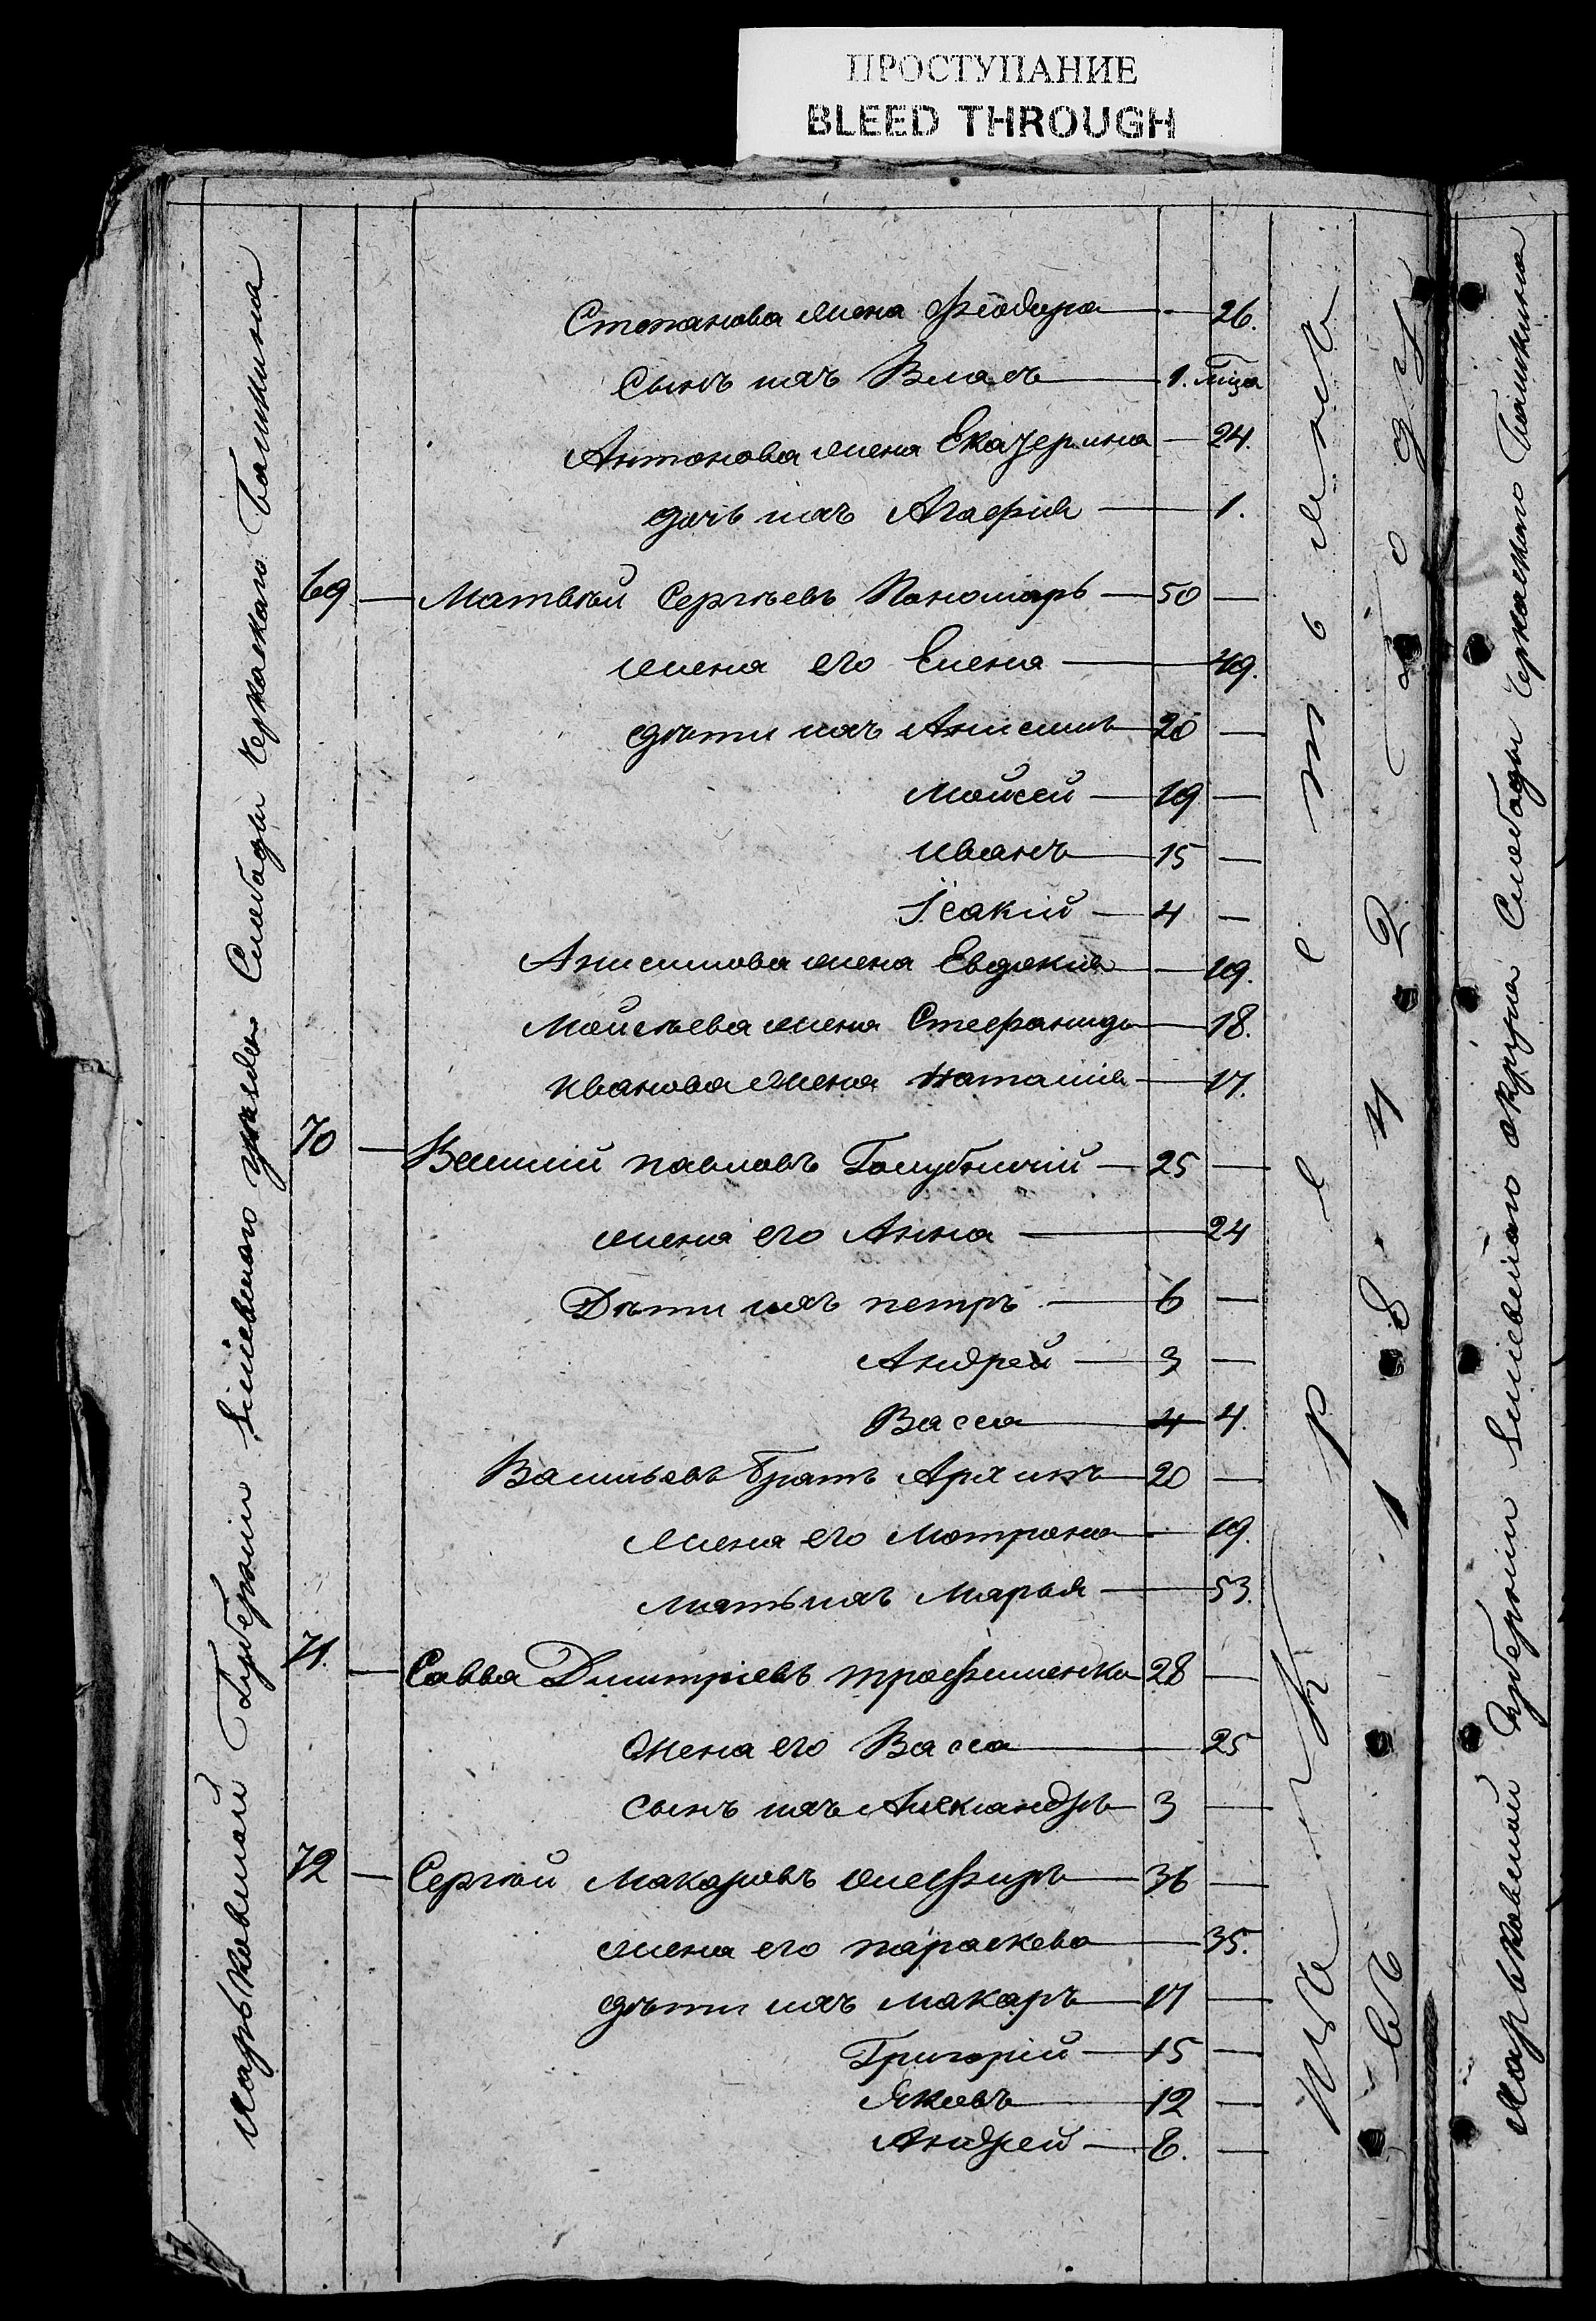 ПРОСТУПАНИЕ
BLEED THROUGH
Харьковской Губернии Зміевского уезда Слободы Черкаского Бишкина
Степанова жена Феодора — 26.
Сынъ ихъ Власъ — 1. мца
Антонова жена Екатерина — 24.
дочь ихъ Агафія — 1.
69 — Матвѣй Сергѣевъ Пономарь — 50 —
жена его Елена — 49.
дѣти ихъ Анисимъ — 20 —
Мойсей — 19 —
Иванъ — 15 —
Ісакій — 4 —
Анисимова жена Евдокия — 19.
Мойсѣева жена Стефанида — 18.
Иванова жена Наталия — 17.
70 — Василий Павловъ Голубничий — 25 —
жена его Анна — 24
Дѣти ихъ петръ — 6 —
Андрей — 3 —
Васса — 4 4.
Васильевъ братъ Архипъ — 20 —
жена его Матрона — 19.
мать ихъ Марья — 53.
71. — Савва Дмитріевъ трофименко — 28 —
Жена его Васса — 25
сынъ ихъ Александръ — 3 —
72 — Сергѣй Макаровъ — 36 —
жена его параскева — 35.
дѣти ихъ макаръ — 17 —
Григорій — 15 —
Яковъ — 12 —
Андрей — 8. —
Харьковской Губернии Зміевского округа Слободы Черкаского Бишкина